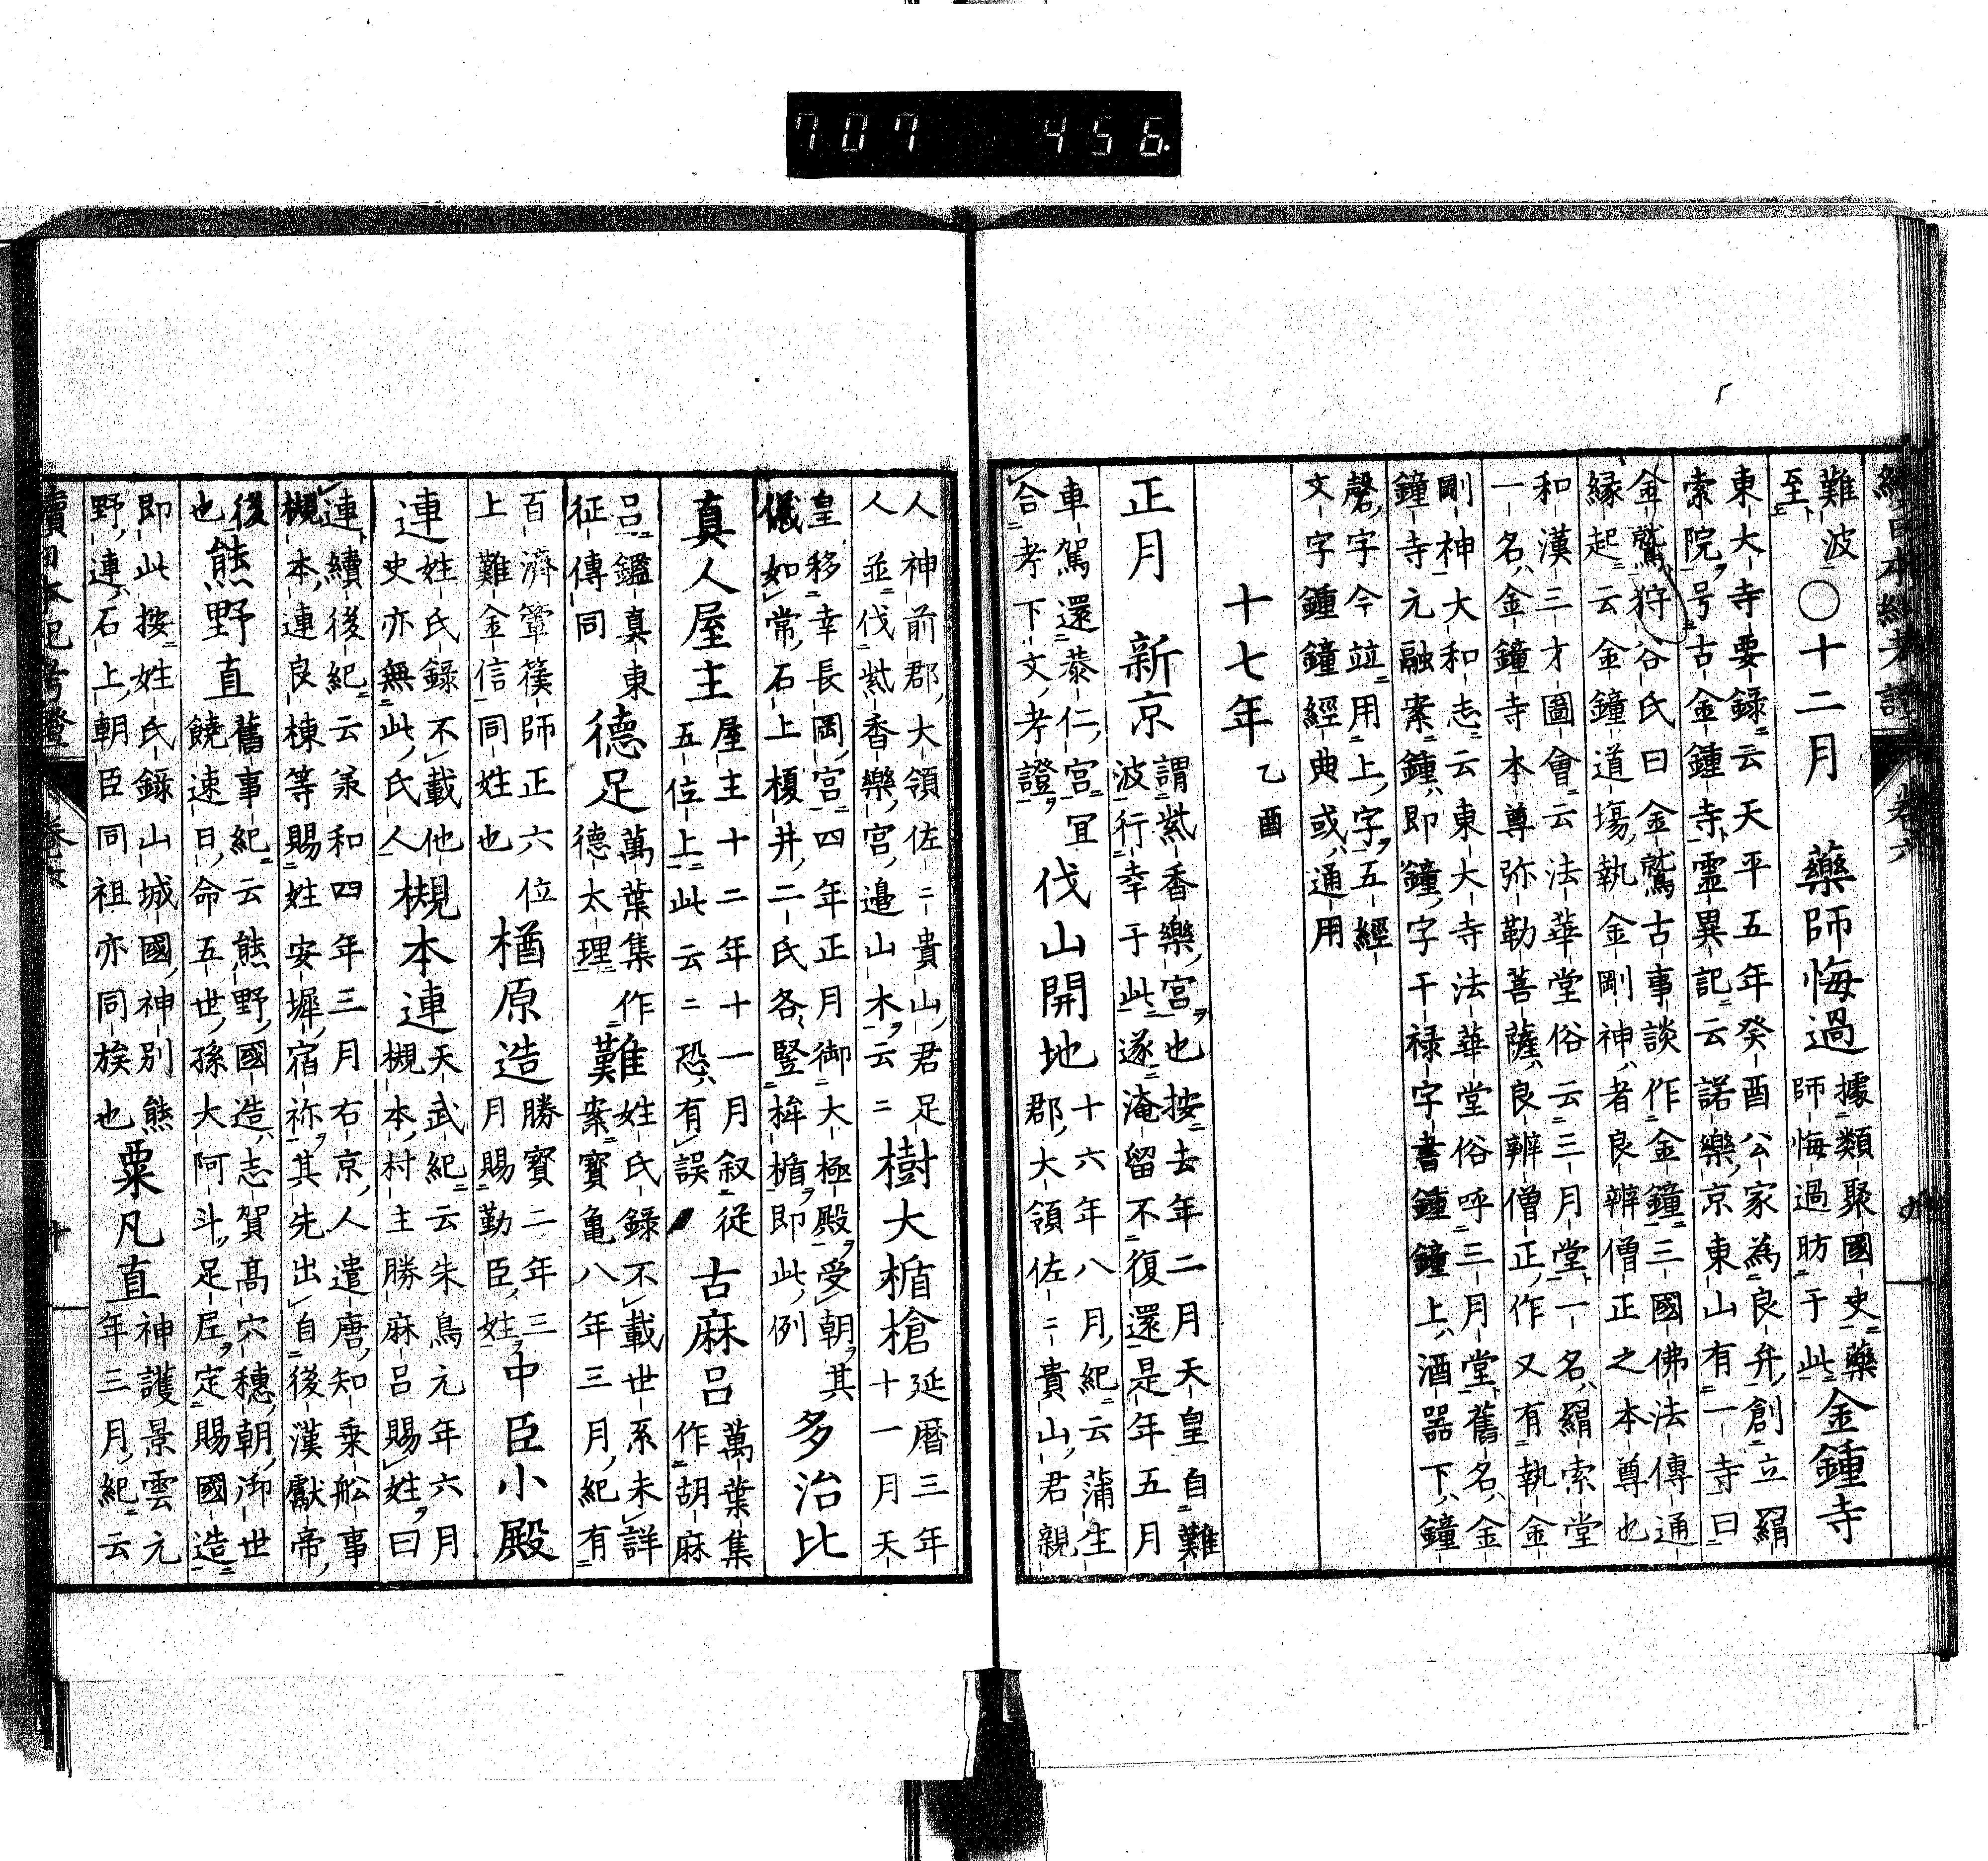 707 456
續日本紀考證 卷六
難波
至
○十二月 藥師悔過
據類聚國史藥
師悔過昉于此
金鍾寺
東大寺要錄云天平五年癸酉公家為良弁創立羂
索院号古金鍾寺靈異記云諾樂京東山有一寺曰
金鷲狩谷氏曰金鷲古事談作金鐘三國佛法傳通
緣起云金鐘道場執金剛神者良辨僧正之本尊也
和漢三才圖會云法華堂俗云三月堂一名羂索堂
一名金鐘寺本尊弥勒菩薩良辨僧正作又有執金
剛神大和志云東大寺法華堂俗呼三月堂舊名金
鐘寺元融案鍾即鐘字干禄字書鍾鐘上酒器下鐘
磬字今竝用上字五經
文字鍾鐘經典或通用
十七年 乙酉
正月 新京
謂紫香樂宮也按去年二月天皇自難
波行幸于此遂淹留不復還是年五月
車駕還恭仁宮宜
合考下文考證
伐山開地
十六年八月紀云蒲生
郡大領佐二貴山君親
人神前郡大領佐二貴山君足
人並伐紫香樂宮邉山木云二
樹大楯槍
延暦三年
十一月天
皇移幸長岡宮四年正月御大極殿受朝其
儀如常石上榎井二氏各竪桙楯即此例
多治比
真人屋主
屋主十二年十一月叙従
五位上此云二恐有誤
古麻呂
萬葉集
作胡麻
呂鑑真東
征傳同
德足
萬葉集作
德太理
難
姓氏錄不載世系未詳
案寶亀八年三月紀有
百濟篳篌師正六位
上難金信同姓也
楢原造
勝寳二年三
月賜勤臣姓
中臣小殿
連
姓氏錄不載他
史亦無此氏人
槻本連
天武紀云朱鳥元年六月
槻本村主勝麻呂賜姓曰
連續後紀云羕和四年三月右京人遣唐知乗舩事
槻本連良棟等賜姓安墀宿祢其先出自後漢獻帝
後
也
熊野直
舊事紀云熊野國造志賀髙穴穂朝御世
饒速日命五世孫大阿斗足尼定賜國造
即此按姓氏錄山城國神别熊
野連石上朝臣同祖亦同族也
粟凡直
神護景雲元
年三月紀云
續日本紀考證 卷六 十